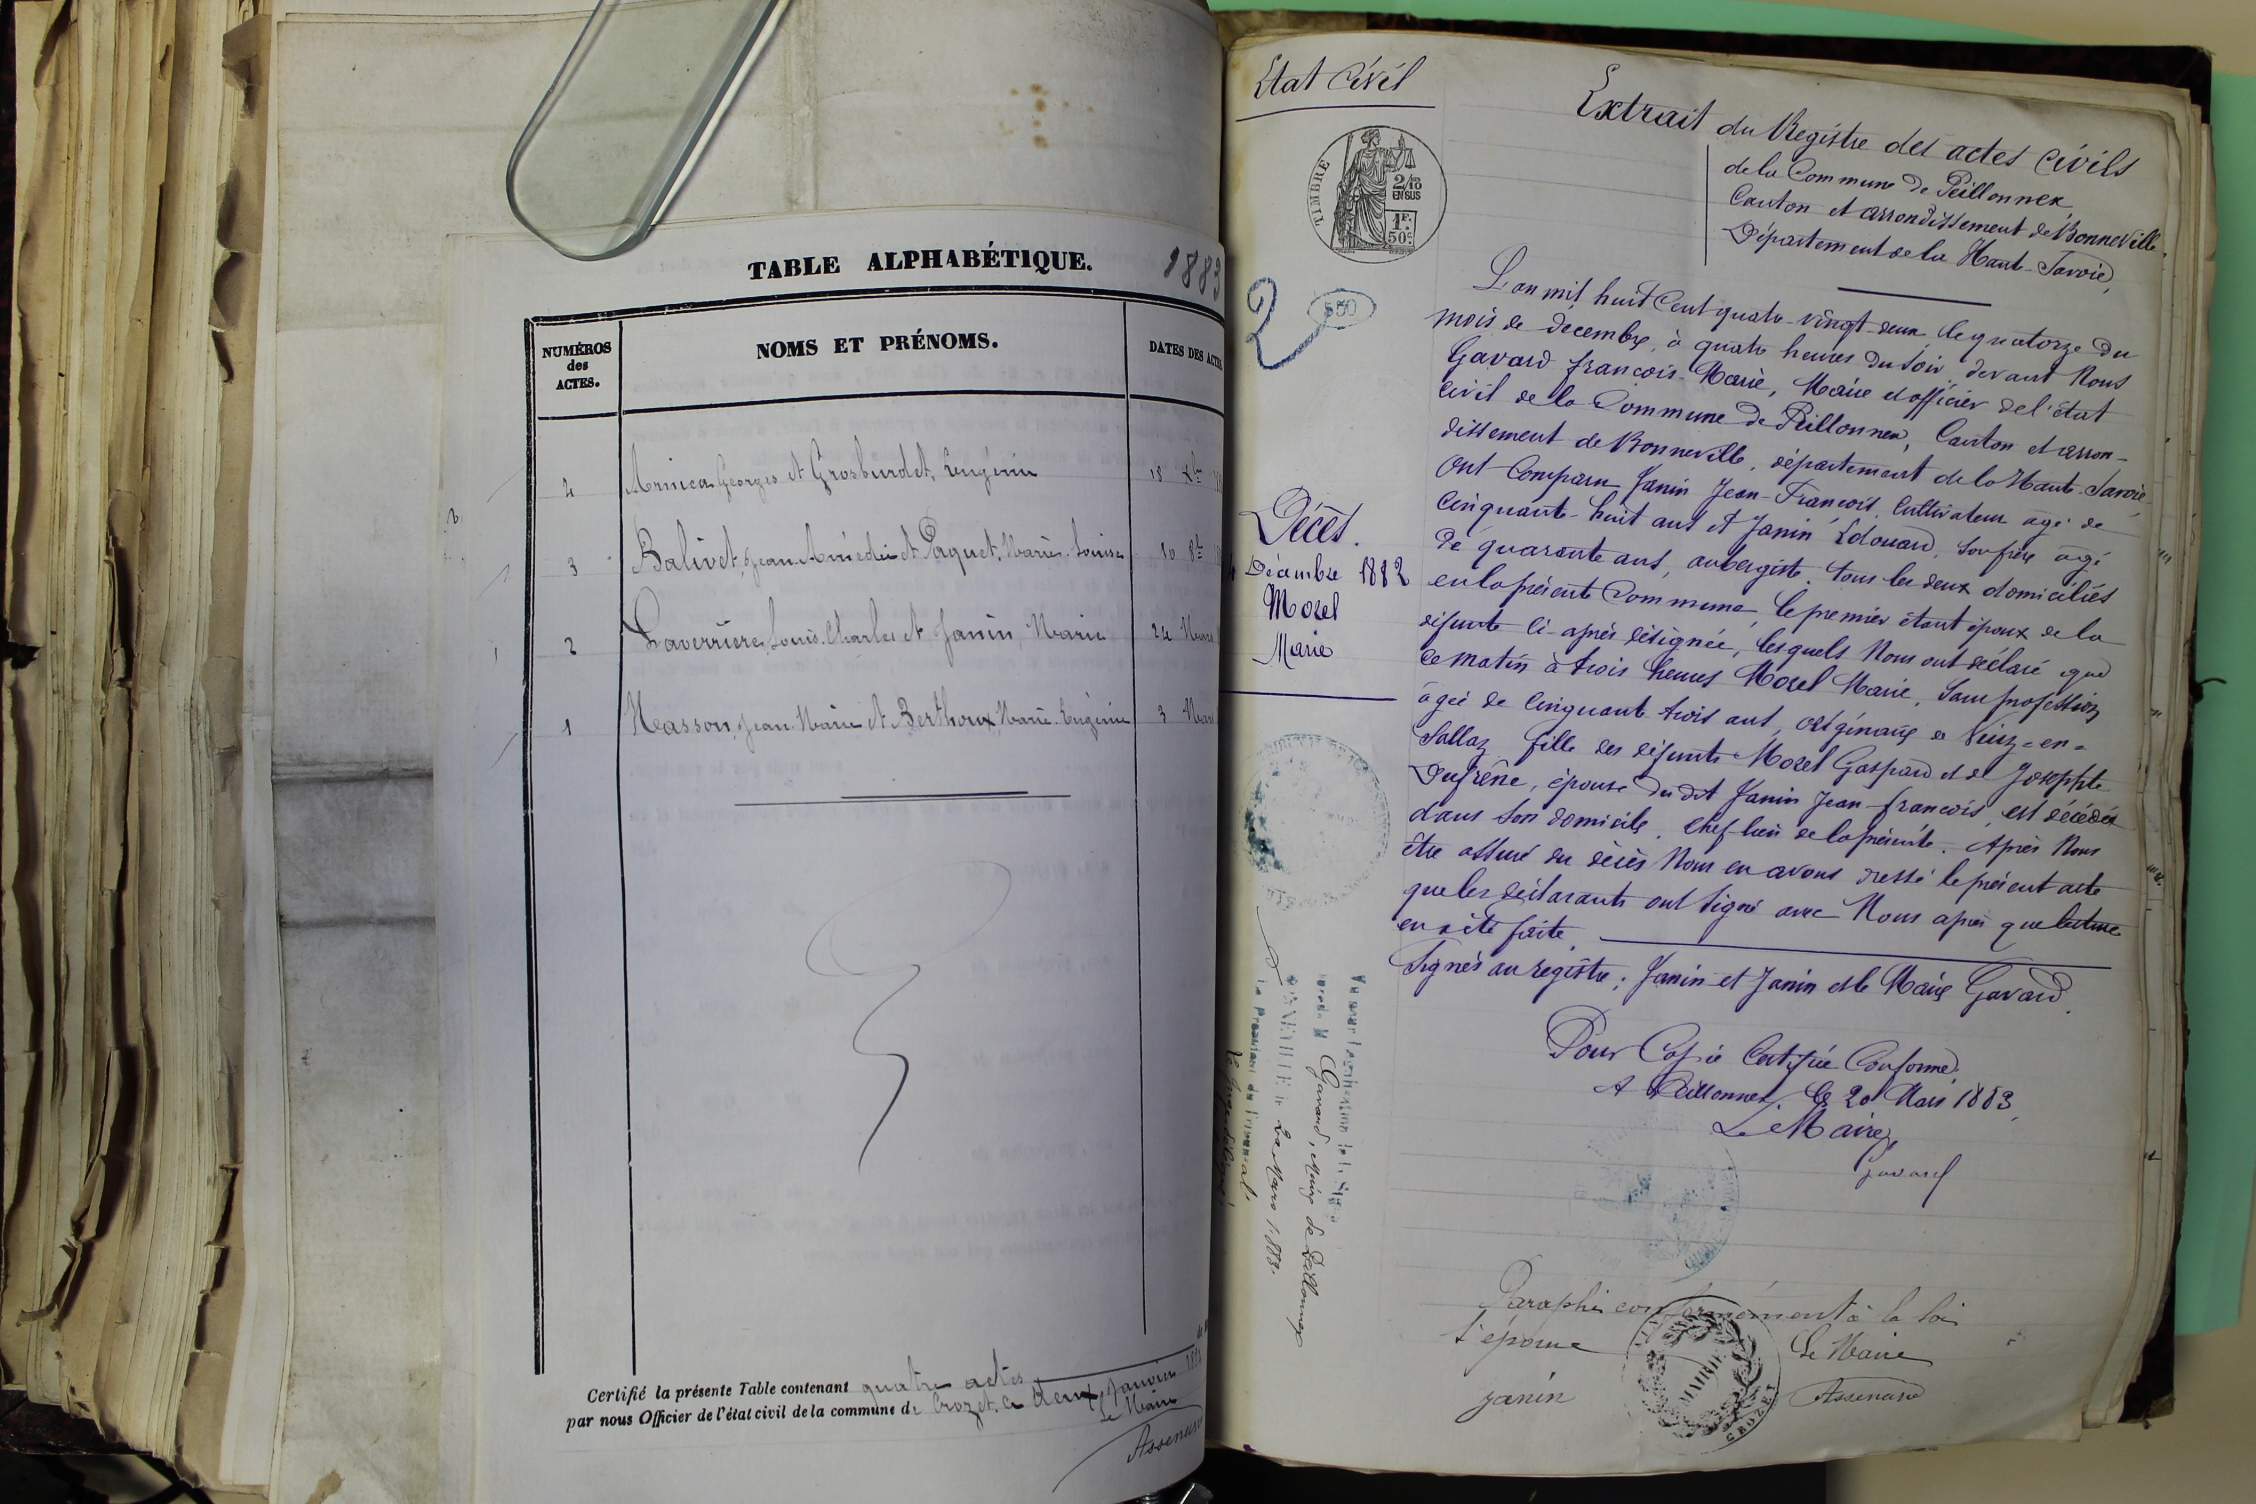 TABLE ALPHABÉTIQUE.
1883
NUMÉROS
des
ACTES.
NOMS ET PRÉNOMS.
DATES DES ACTES
4 Armica Georges et Grosburdet, Eugénie 15 Xbre
3 Balivet, Jean Amédée et Paquet, Marie Louise 10 8bre
2 Laverriere, Louis Charles et Janin, Marie 24
1 Masson, Jean Marie et Berthoux Marie Eugénie 3 Mars
Certifié la présente Table contenant quatre actes
par nous Officier de l'état civil de la commune de Crozet, ce deux Janvier 188
Le Maire
Assenare
Etat Civil
TIMBRE
2/10
EN SUS
1F.
50c.
2
550
Décès.
Décembre 1882
Morel
Marie
Extrait du Registre des actes civils
de la Commune de Peillonnex
Canton et arrondissement de Bonneville
Département de la Haute-Savoie,
L'an mil huit Cent quatre-vingt-deux, le quatorze du
mois de décembre, à quatre heures du soir, devant Nous
Gavard françois-Marie, Maire et officier de l'état
civil de la Commune de Peillonnex, Canton et arron-
dissement de Bonneville, département de la Haute-Savoie,
Ont Comparu Janin Jean-François, Cultivateur agé de
Cinquante-huit ans et Janin Edouard, son frère âgé
de quarante ans, aubergiste, tous les deux domiciliés
en la présente Commune, le premier étant époux de la
défunte ci-après désignée, lesquels Nous ont déclaré que
ce matin à trois heures Morel Marie, Sans profession
agée de Cinquante trois ans, originaire de Viuz-en-
Sallaz, fille des défunts Morel Gaspard et de Josephte
Dufrêne, épouse du dit Janin Jean-françois, est décédée
dans son domicile, chef-lieu de la présente. Après Nous
être assuré du décès Nous en avons dressé le présent acte
que les déclarants ont signé avec Nous après que lecture
en a été faite.
Signés au registre: Janin et Janin et le Maire Gavard.
Pour Copie Certifiée Conforme,
A Peillonnex, le 20 Mars 1883,
Le Maire,
Gavard
Vu pour légalisation de la Sig
de M Gavard, Maire de Peillonnex
BONNEVILLE le Mars 1883.
Le Président du Tribunal
Paraphé conformément à la loi
L'épouse
Le Maire
Janin
Assenare
MAIRIE
CROZET